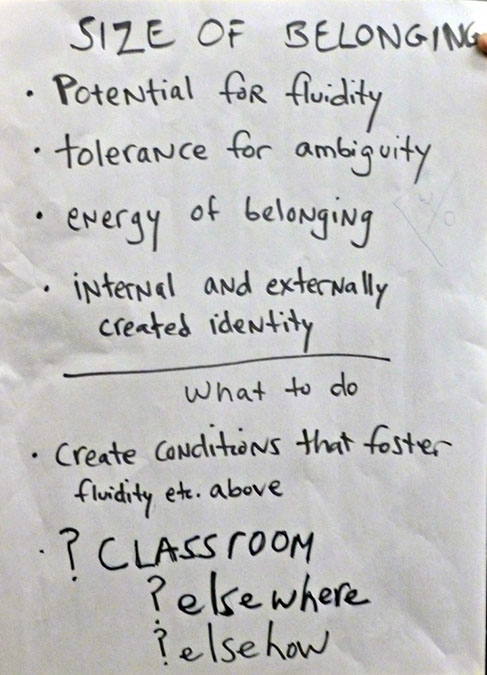 SIZE OF BELONGING
• Potential for fluidity
• tolerance for ambiguity
• energy of belonging
• internal and externally
created identity
What to do
• Create conditions that foster
fluidity etc. above
• ? CLASSROOM
? elsewhere
? elsehow